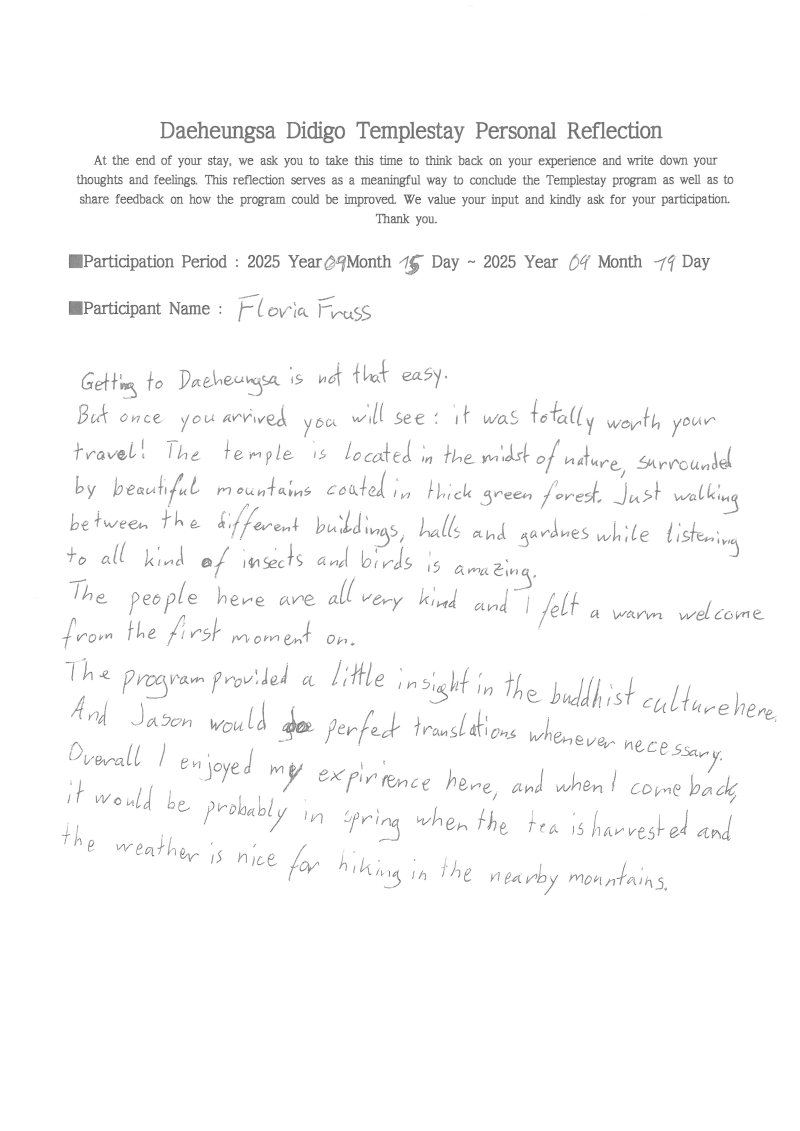 Daeheungsa Didigo Templestay Personal Reflection
At the end of your stay, we ask you to take this time to think back on your experience and write down your
thoughts and feelings. This reflection serves as a meaningful way to conclude the Templestay program as well as to
share feedback on how the program could be improved. We value your input and kindly ask for your participation.
Thank you.
■Participation Period : 2025 Year 09 Month 15 Day ~ 2025 Year 09 Month 19 Day
■Participant Name : Floria Fruss
Getting to Daeheungsa is not that easy.
But once you arrived you will see: it was totally worth your
travel! The temple is located in the midst of nature, surrounded
by beautiful mountains coated in thick green forest. Just walking
between the different buildings, halls and gardnes while listening
to all kind of insects and birds is amazing.
The people here are all very kind and I felt a warm welcome
from the first moment on.
The program provided a little insight in the buddhist culture here.
And Jason would perfect translations whenever necessary.
Overall I enjoyed my expirience here, and when I come back,
it would be probably in spring when the tea is harvested and
the weather is nice for hiking in the nearby mountains.